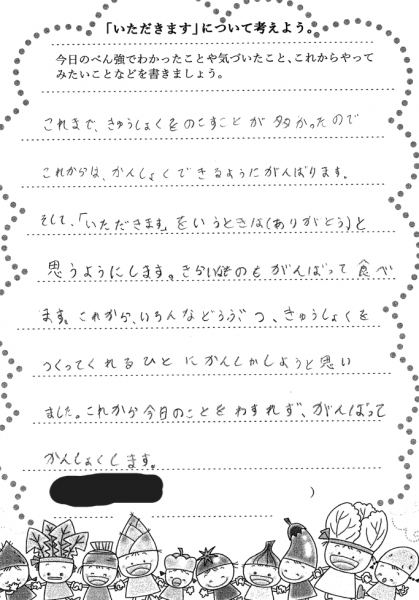 「いただきます」について考えよう。
今日のべん強でわかったことや気づいたこと、これからやって
みたいことなどを書きましょう。
これまで、きゅうしょくをのこすことが多かったので
これからは、かんしょくできるようにがんばります。
そして、「いただきます」をいうときは(ありがとう)と
思うようにします。きらいなものもがんばって食べ
ます。これから、いろんなどうぶつ、きゅうしょくを
つくってくれるひとにかんしかしようと思い
ました。これから今日のことをわすれず、がんばって
かんしょくします。
)